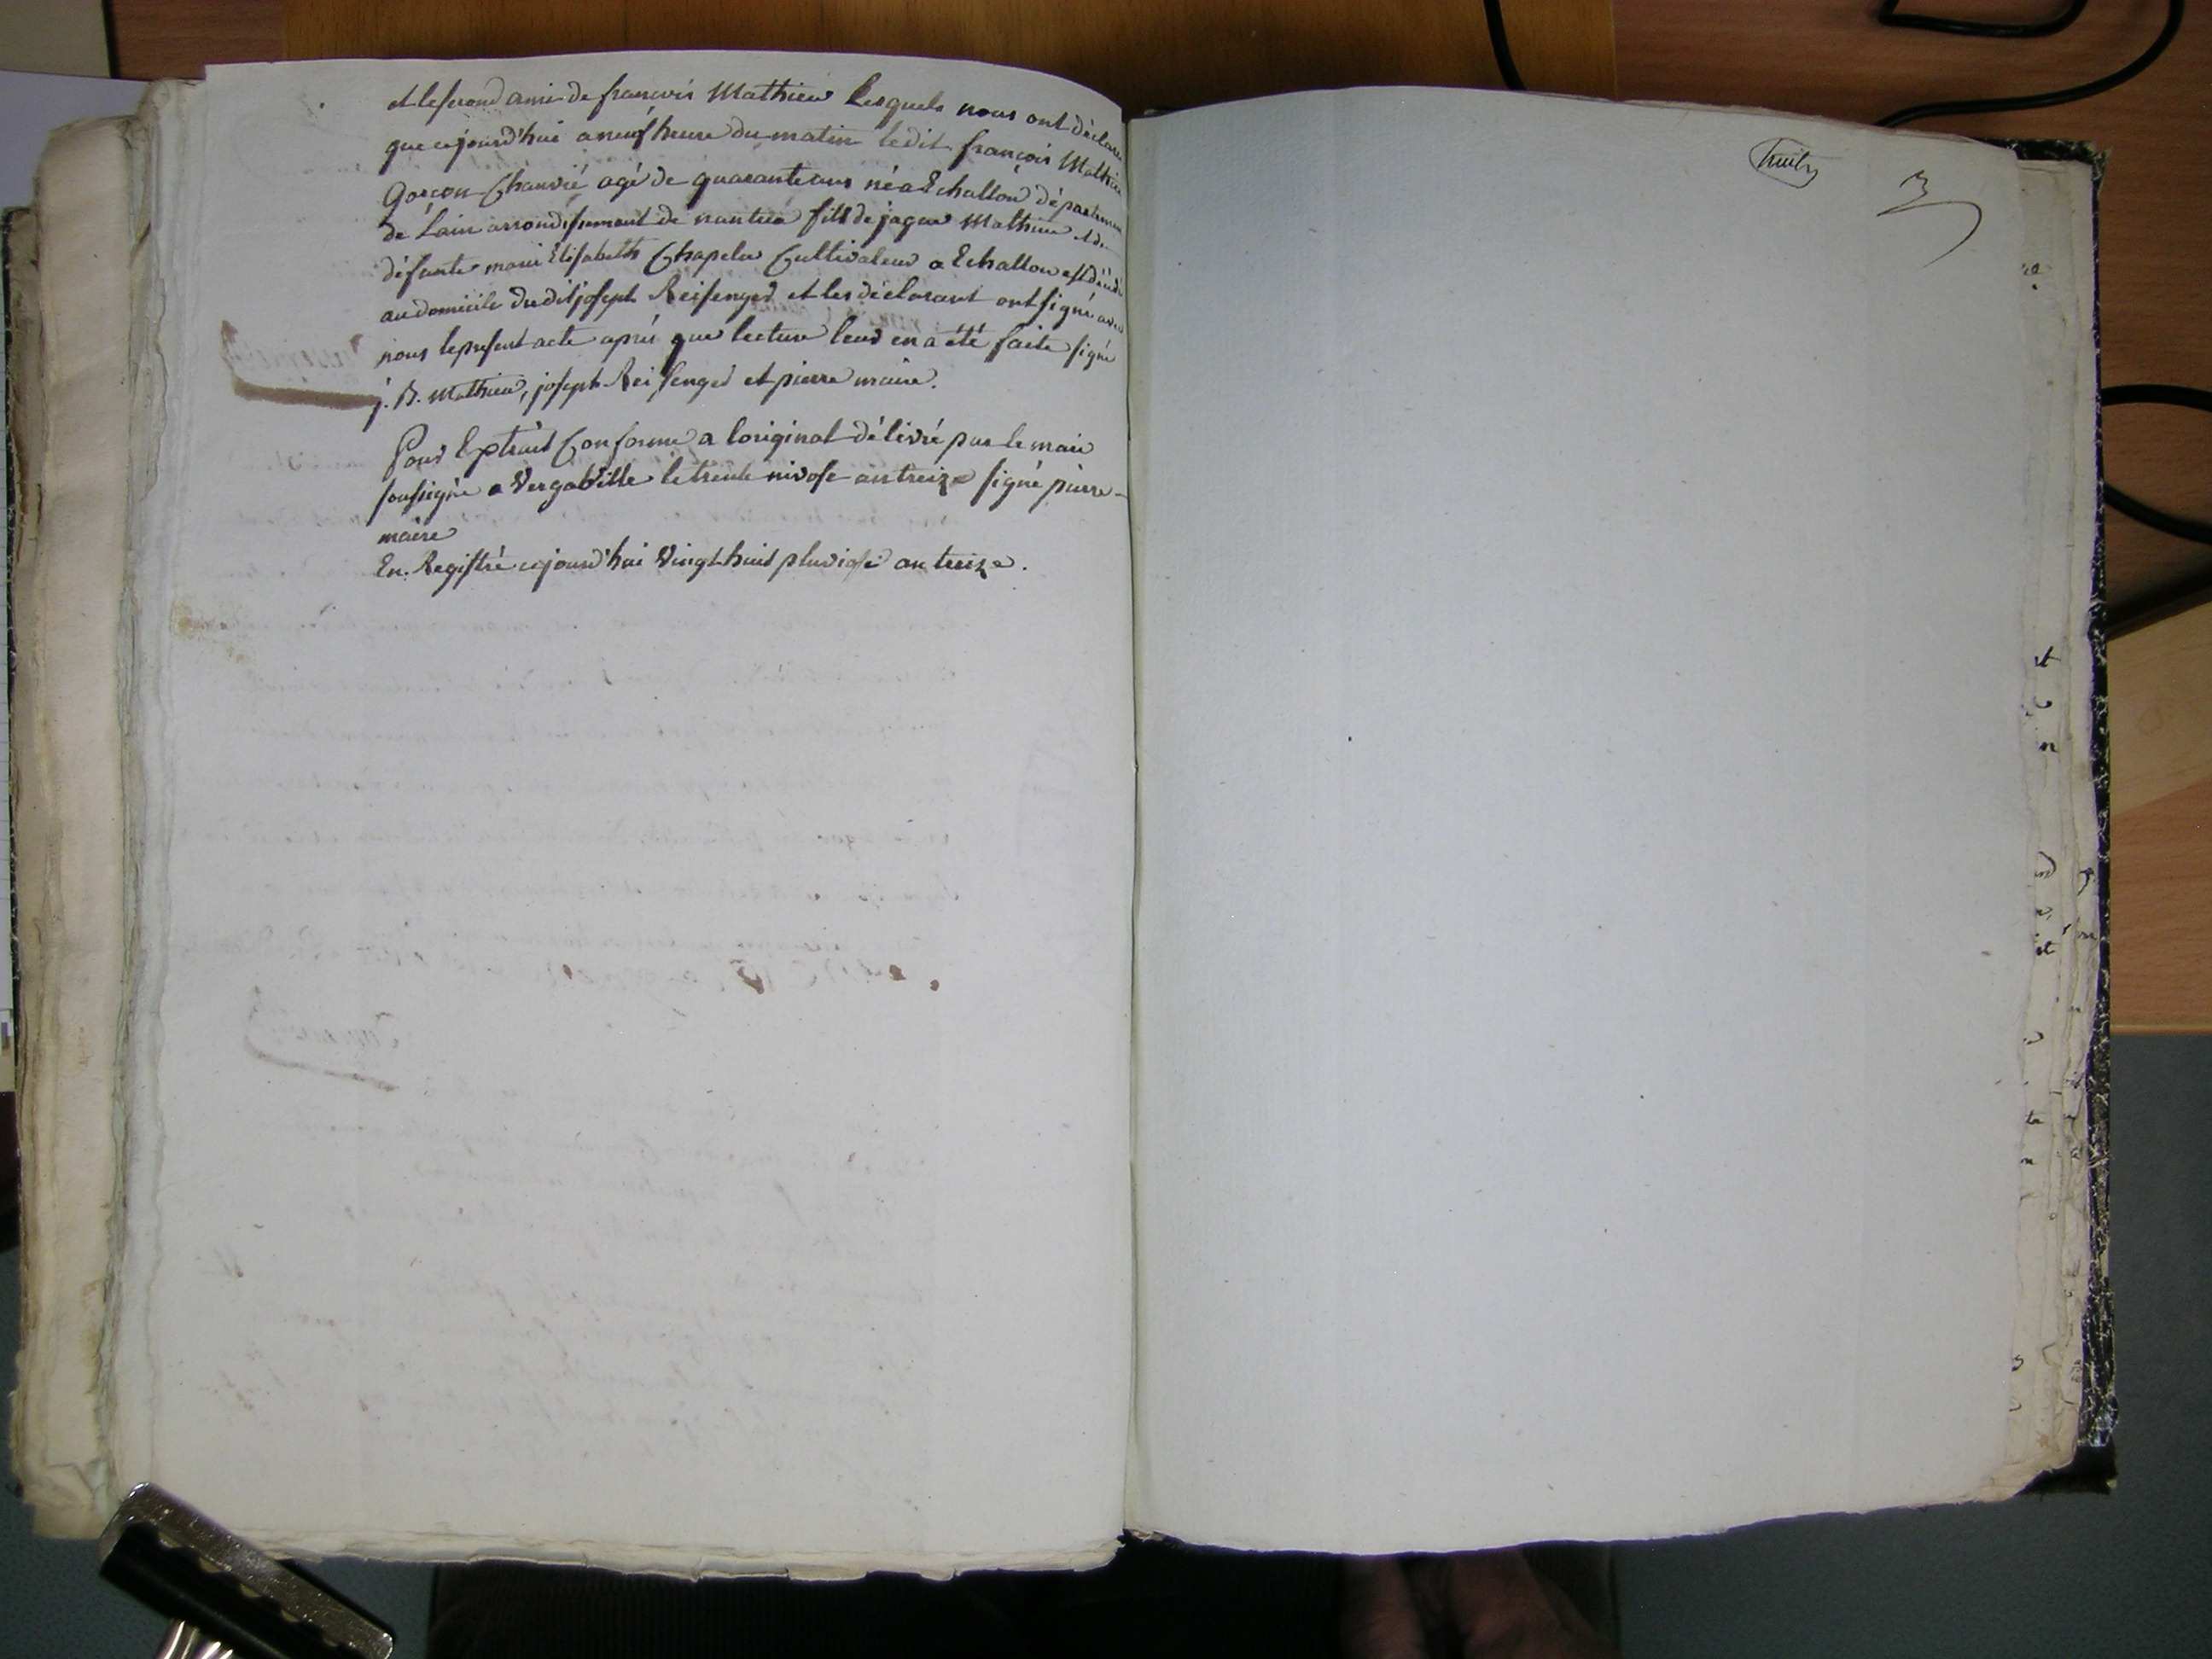 et le second ami de françois Mathieu Lesquels nous ont déclaré
que cejourd'hui a neuf heure du matin ledit françois Mathieu
Garçon Chanvié agé de quarante ans né a Echallon département
de Lain arrondissement de nantua fils de jaque Mathieu et de
défunte marie Elisabeth Chapelu Cultivateur a Echallon est décédé
au domicile du dit joseph Reisenger et les déclarant ont signé avec
nous le présent acte après que lecture leur en a été faite signé
j. B. Mathieu, joseph Reisenger et pierre maire.
Pour Extrait Conforme a loriginal délivré par le maire
soussigné a Vergaville le trente nivose an treize signé pierre
maire
En Registré cejourd'hui Vingt huit pluviose an treize.
huit